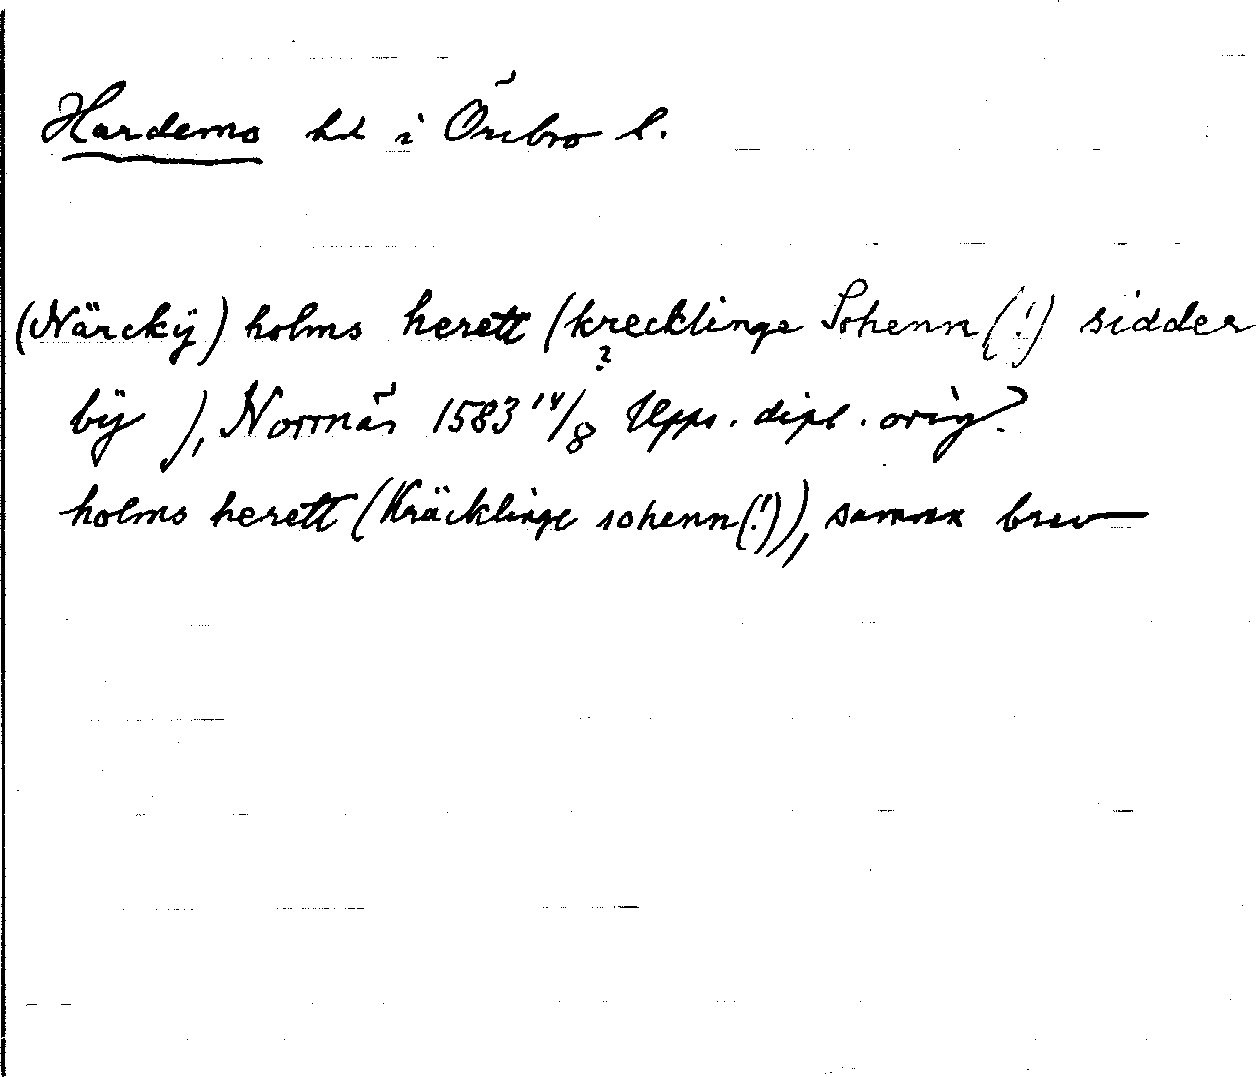 Hardemo hd i Örebro l.
(Närckÿ) holms herett (krecklinge Sohenn (!) sidder
?
bÿ ), Norrnäs 1583 14/8 Upps. dipl. orig?
holms herett (Kräcklinge sohenn (!)), samma brev